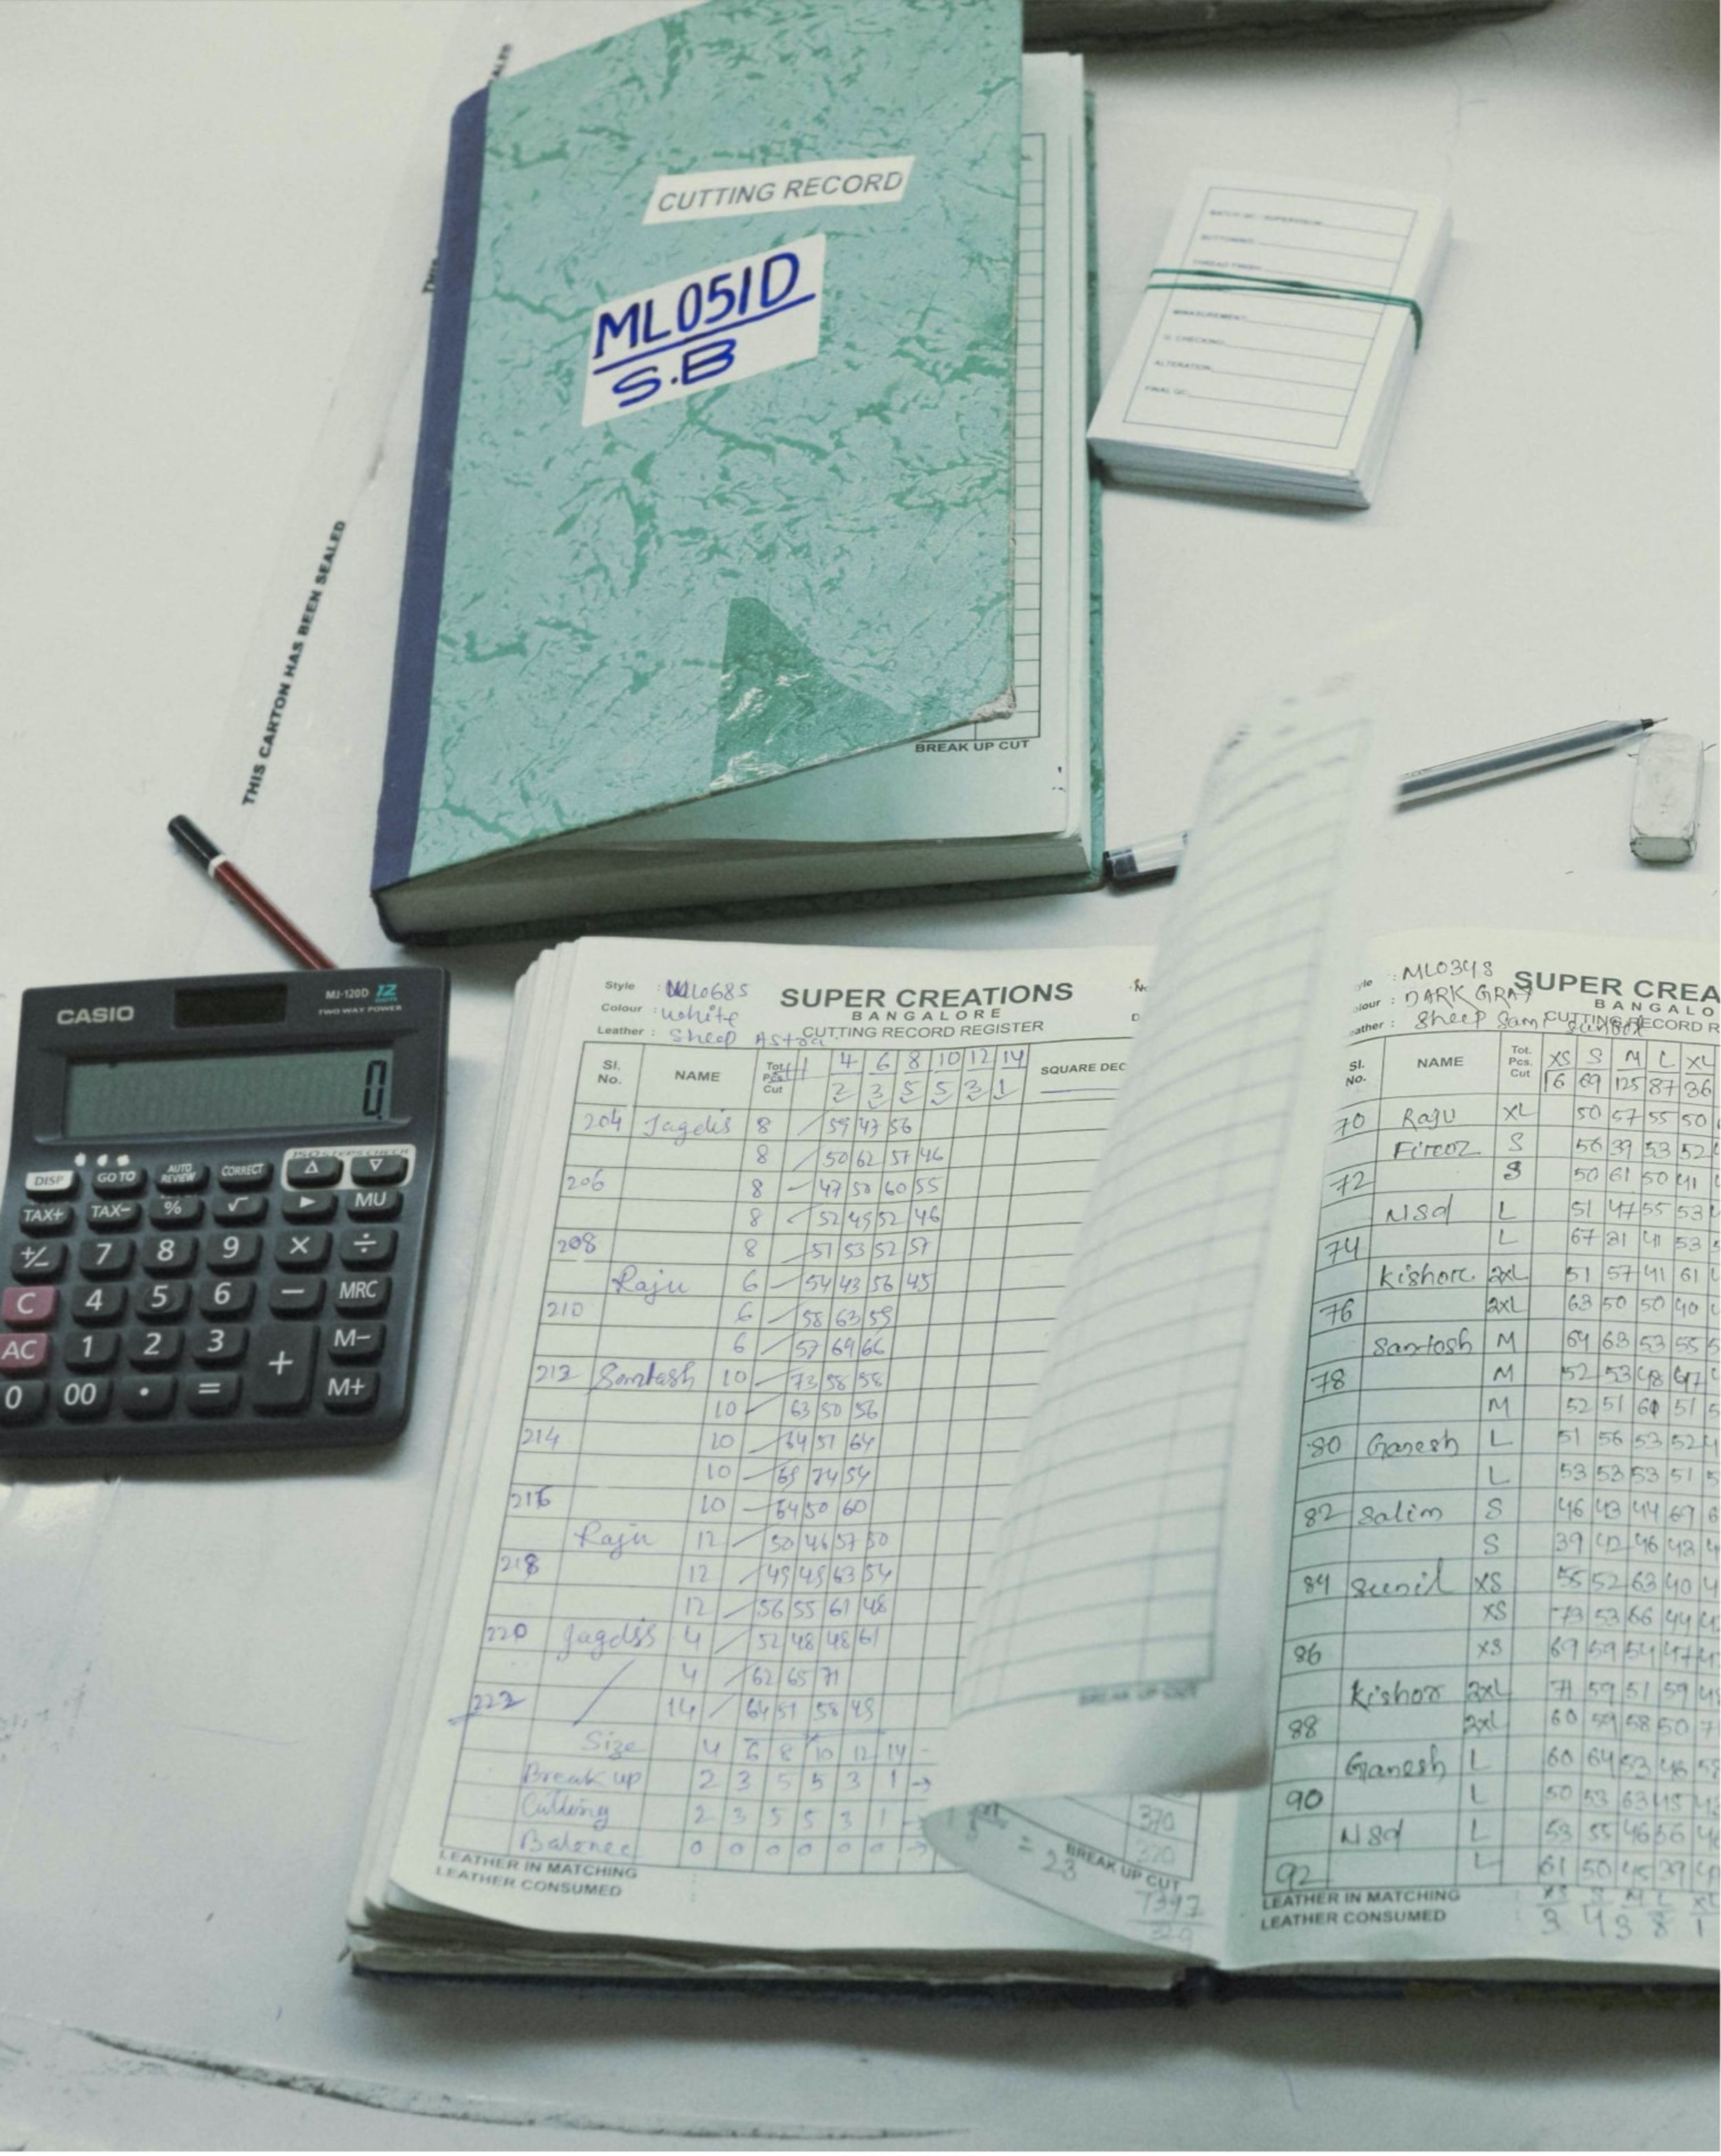 CUTTING RECORD
ML051D
S.B
MEASUREMENT
ALTERATION
FINAL QC
THIS CARTON HAS BEEN SEALED
BREAK UP CUT
CASIO
MJ-120D 12
TWO WAY POWER
0
DISP GO TO AUTO REVIEW CORRECT
TAX+ TAX- % √ MU
+/- 7 8 9 × ÷
C 4 5 6 − MRC
AC 1 2 3 + M−
0 00 • = M+
Style :
Colour : White
Leather : Sheep
SUPER CREATIONS
BANGALORE
CUTTING RECORD REGISTER
Sl. No. NAME Tot. Pcs. Cut 4 6 8 10 12 14 SQUARE DEC
2 3 5 5 3 1
204 Jagdis 8 59 47 56
8 50 62 57 46
206 8 47 50 60 55
8 52 49 52 46
208 8 51 53 52 57
Raju 6 54 43 56 45
210 6 58 63 59
6 57 69 66
212 Santash 10 73 58 58
10 63 50 56
214 10 64 51 64
10
216 10 64 50 60
Raju 12 50 46 57 50
218 12 49 49 63 54
12 56 55 61 48
220 Jagdss 4 52 48 48 61
4 62 65 71
222 14 64 51 58 49
Size 4 6 8 10 12 14
Break up 2 3 5 5 3 1
Cutting 2 3 5 5 3 1
0 0 0 0 0 0
LEATHER IN MATCHING
LEATHER CONSUMED
BREAK UP CUT
370
= 23
BREAK UP CUT
7397
: ML0348
: DARK GRAY
: Sheep
SUPER CREA
BANGALO
CUTTING RECORD R
Sl. No. NAME Tot. Pcs. Cut XS S M L XL
16 69 125 87 36
70 Raju XL 50 57 55 50
Firoz S 56 39 53 52
72 S 50 61 50 41
Nsd L 51 47 55 53
74 L 67 31 41 53
Kishore 2XL 51 57 41 61
76 2XL 63 50 50 40
Santosh M 64 63 53 55
78 M 52 53 48
M 52 51 60 51
80 Ganesh L 51 56 53 52
L 53 53 53 51
82 Salim S 46 43 44 69
S 39 42 46 43
84 Sunil XS 55 52 63 40
XS 73 53 66 44
86 XS 69 59 54 47
Kishor 2XL 71 59 51 59
88 2XL 60 59 58 50
Ganesh L 60 64 53 46
90 L 50 53 63 45
Nsd L 53 55 46 56
92 L 61 50 45 39
LEATHER IN MATCHING
LEATHER CONSUMED
XS S M L XL
3 4 3 8 1